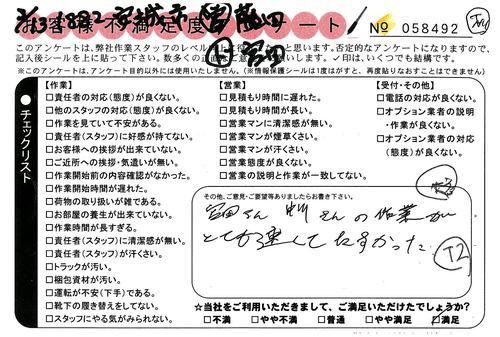 お客様不満足度アンケート
№ 058492
このアンケートは、弊社作業スタッフのレベル
と思います。否定的なアンケートになりますので、
記入後シールを上に貼って下さい。数多くの
✓印は、いくつでも結構です。
※このアンケートは、アンケート目的以外には使用いたしません。(※情報保護シールは1度はがすと、再度貼りなおすことはできません)
チェックリスト
【作業】
□責任者の対応(態度)が良くない。
□他のスタッフの対応(態度)が良くない。
□作業を見ていて不安がある。
□責任者(スタッフ)に好感が持てない。
□お客様への挨拶が出来ていない。
□ご近所への挨拶・気遣いが無い。
□作業開始前の内容確認がなかった。
□作業開始時間が遅れた。
□荷物の取り扱いが雑である。
□お部屋の養生が出来ていない。
□作業時間が長すぎる。
□責任者(スタッフ)に清潔感が無い。
□責任者(スタッフ)が汗くさい。
□トラックが汚い。
□梱包資材が汚い。
□運転が不安(下手)である。
□靴下の履き替えをしてない。
□スタッフにやる気がみられない。
【営業】
□見積もり時間に遅れた。
□見積もり時間が長い。
□営業マンに清潔感が無い。
□営業マンが煙草くさい。
□営業マンが汗くさい。
□営業態度が良くない。
□営業の説明と作業が一致してない。
【受付・その他】
□電話の対応が良くない。
□オプション業者の説明
・作業が良くない。
□オプション業者の対応
(態度)が良くない。
その他、ご意見・ご要望等ありましたらお書き下さい。
宮田さん 中川さんの作業が
とても速くてたすかった
T2
☆当社をご利用いただきまして、ご満足いただけたでしょうか?
□不満 □やや不満 □普通 □やや満足 ☑満足